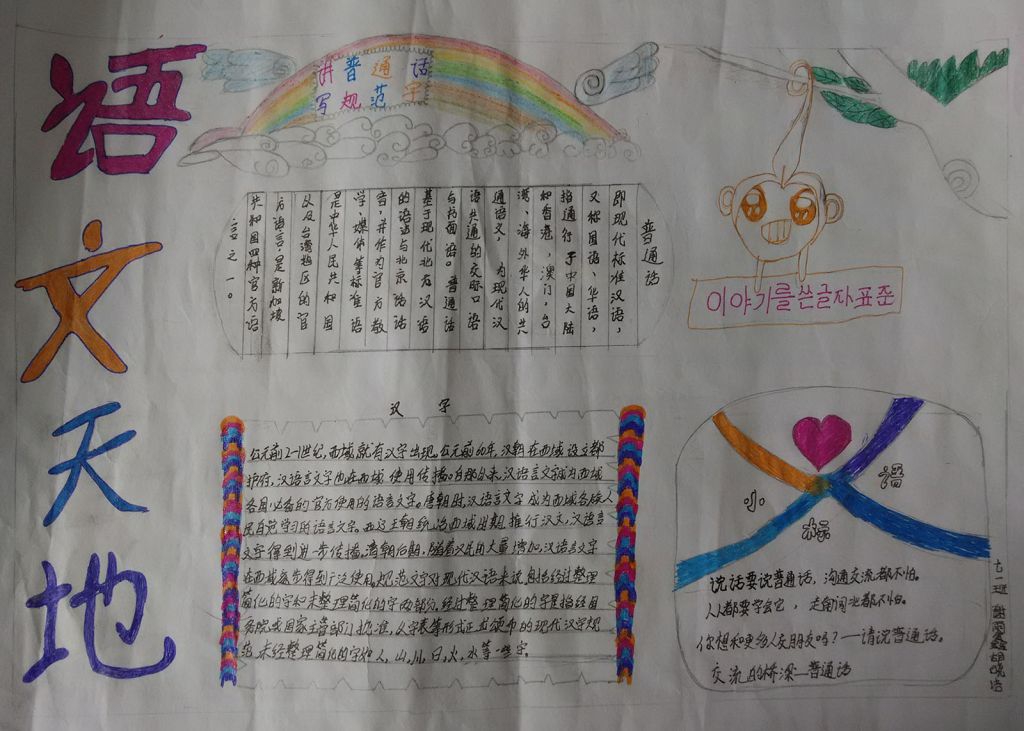 语文天地
讲普通话
写规范字
普通话
即现代标准汉语，
又称国语、华语，
指通行于中国大陆
和香港，澳门，台
湾、海外华人的共
通语文，为现代汉
语共通的交际口语
与书面语。普通话
基于现代北方汉语
的语法与北京话语
音，并作为官方教
学、媒体等标准语
是中华人民共和国
以及台湾地区的官
方语言，是新加坡
共和国四种官方语
言之一。
이야기를 쓴글자표준
汉字
公元前2-1世纪，西域就有汉字出现。公元前60年，汉朝在西域设立都
护府，汉语言文字也在西域使用传播。自那以来，汉语言文字成为西域
各国必备的官方使用的语言文字。唐朝时，汉语言文字成为西域各族人
民自觉学习的语言文字。西辽王朝统治西域时期推行汉文，汉语言
文字得到进一步传播。清朝后期，随着汉民的大量增加，汉语言文字
在西域逐步得到广泛使用。规范文字对现代汉语来说，包括经过整理
简化的字和未整理简化的字两部分。经过整理简化的字是指经国
务院或国家主管部门批准，以字表等形式正式颁布的现代汉字规
范，未经整理简化的字如人，山，川，日，火，水等一些字。
小标语
说话要说普通话，沟通交流都不怕。
人人都要学会它，走南闯北都不怕。
你想和更多人交朋友吗？——请说普通话。
交流的桥梁——普通话
七一班